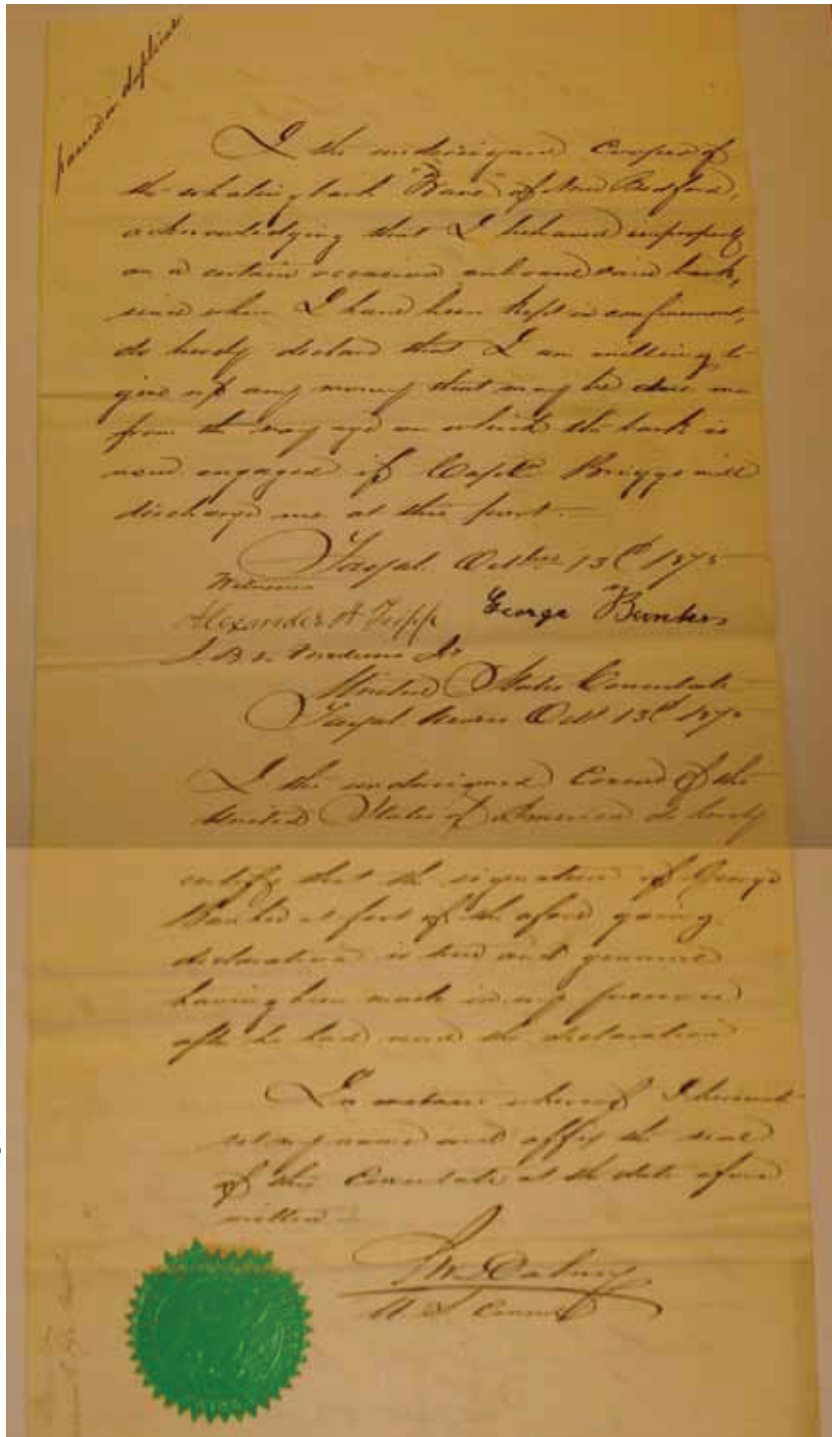 I the undersigned Cooper of
the whaling bark "Wave" of New Bedford,
acknowledging that I behaved improperly
on a certain occasion on board said bark,
since when I have been kept in confinement,
do hereby declare that I am willing to
give up any money that may be due me
from the voyage on which the bark is
now engaged if Capt Briggs will
discharge me at this port.
Fayal. Octber 13th 1875
Witnesses
Alexander H George Bunker
United States Consulate
Fayal Azores Oct 13th 1875
I the undersigned Consul of the
United States of America do hereby
certify that the signature of George
Bunker at foot of the afore going
declaration is true and genuine
having been made in my presence
after he had read the declaration
In witness whereof I hereunto
set my name and affix the seal
of this Consulate at the date afore
written
U. S. Consul